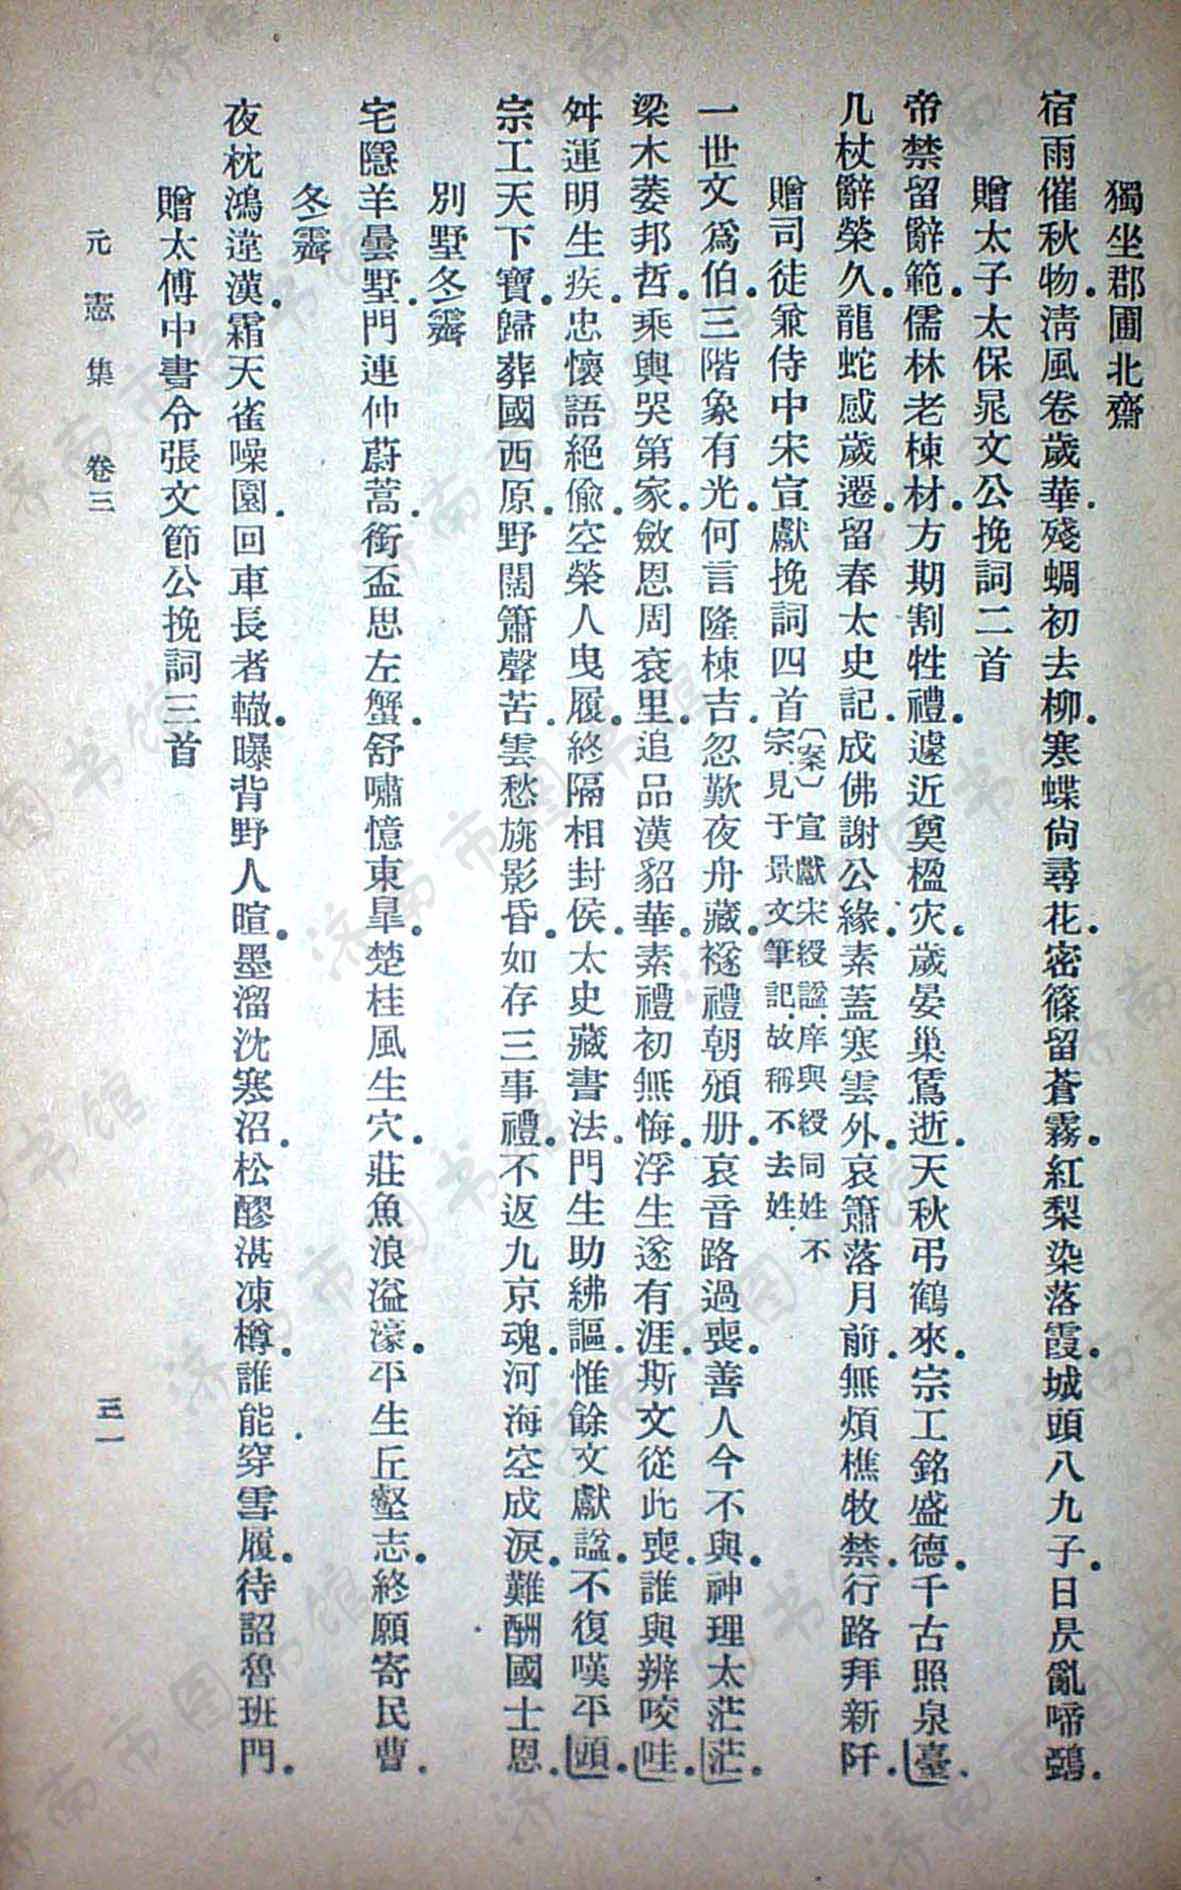 獨坐郡圃北齋
宿雨催秋物。淸風卷歲華。殘蜩初去柳。寒蝶尙尋花。密篠留蒼霧。紅梨染落霞。城頭八九子。日昃亂啼鴉。
贈太子太保晁文公挽詞二首
帝禁留辭範。儒林老棟材。方期割牲禮。遽近奠楹灾。歲晏巢鵀逝。天秋弔鶴來。宗工銘盛德。千古照泉臺。
几杖辭榮久。龍蛇感歲遷。留春太史記。成佛謝公緣。素蓋寒雲外。哀簫落月前。無煩樵牧禁。行路拜新阡。
贈司徒兼侍中宋宣獻挽詞四首〔案〕宣獻宋綬諡。庠與綬同姓不宗。見于景文筆記。故稱不去姓。
一世文爲伯。三階象有光。何言隆棟吉。忽歎夜舟藏。襚禮朝頒册。哀音路過喪。善人今不與。神理太茫茫。
梁木萎邦哲。乘輿哭第家。斂恩周袞里。追品漢貂華。素禮初無悔。浮生遂有涯。斯文從此喪。誰與辨咬哇。
舛運明生疾。忠懷語絕偷。空榮人曳履。終隔相封侯。太史藏書法。門生助紼謳。惟餘文獻諡。不復嘆平頭。
宗工天下寶。歸葬國西原。野闊簫聲苦。雲愁旐影昏。如存三事禮。不返九京魂。河海空成淚。難酬國士恩。
別墅冬霽
宅隱羊曇墅。門連仲蔚蒿。銜盃思左蟹。舒嘯憶東皐。楚桂風生穴。莊魚浪溢濠。平生丘壑志。終願寄民曹。
冬霽
夜枕鴻違漢。霜天雀噪園。回車長者轍。曝背野人暄。墨溜沈寒沼。松醪湛凍樽。誰能穿雪履。待詔魯班門。
贈太傅中書令張文節公挽詞三首
元憲集 卷三
三一
济南市图书馆